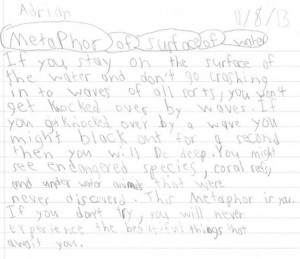 Adrian 11/8/13
Metaphor of surface of water
If you stay on the surface of
the water and don't go crashing
in to waves of all sorts, you won't
get knocked over by waves. If
you get knocked over by a wave you
might black out for a second
then you will be deep. You might
see endangered species, coral reefs,
and under water animals that were
never discoverd. This Metaphor is you.
If you don't try, you will never
experience the beautiful things that
await you.